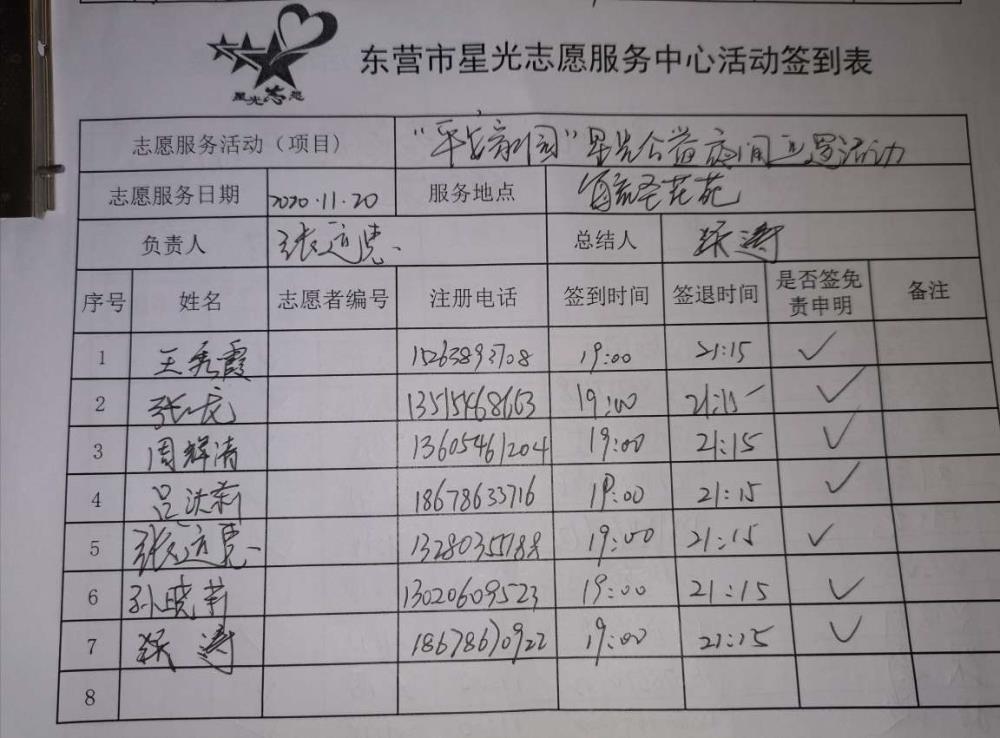 星光志愿
东营市星光志愿服务中心活动签到表
志愿服务活动（项目） “平安家园”星光公益夜间巡逻活动
志愿服务日期 2020.11.20 服务地点
负责人 总结人
序号 姓名 志愿者编号 注册电话 签到时间 签退时间 是否签免责申明 备注
1 王秀霞 15263893708 19:00 21:15 ✓
2 13515468663 19:00 21:15 ✓
3 周辉清 13605461204 19:00 21:15 ✓
4 18678633716 19:00 21:15 ✓
5 19:00 21:15 ✓
6 孙晓莉 13020609523 19:00 21:15 ✓
7 18678670922 19:00 21:15 ✓
8